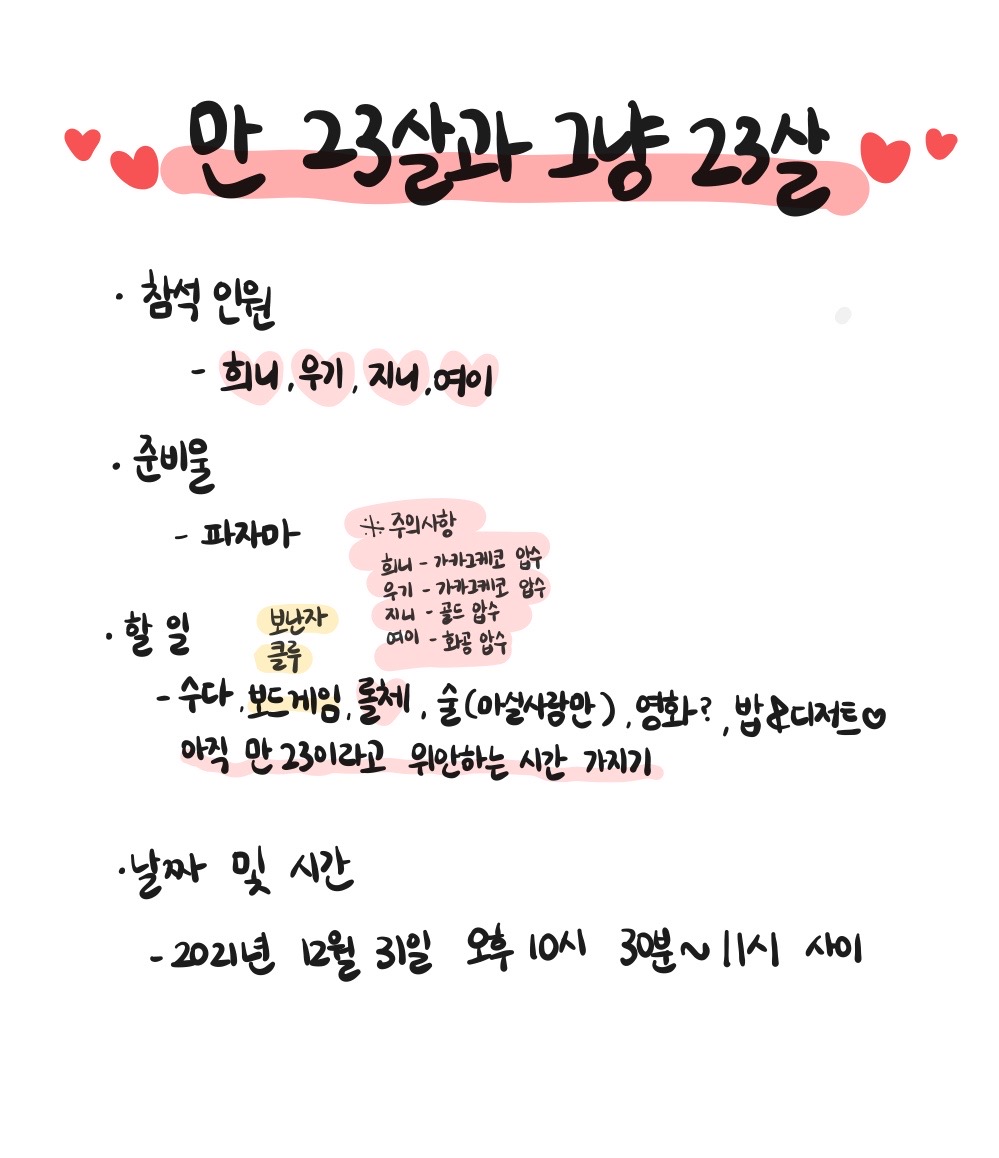 만 23살과 그냥 23살
· 참석 인원
- 희니, 우기, 지니, 여이
· 준비물
- 파자마
※ 주의사항
희니 - 가카그케코 압수
우기 - 가카그케코 압수
지니 - 골드 압수
여이 - 화공 압수
· 할 일
보난자
클루
- 수다, 보드게임, 롤체, 술(마실사람만), 영화?, 밥&디저트♡
아직 만 23이라고 위안하는 시간 가지기
· 날짜 및 시간
- 2021년 12월 31일 오후 10시 30분 ~ 11시 사이